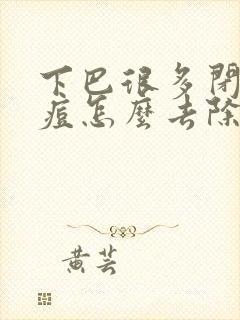 下巴很多閉
痘怎麼去除
黄芸